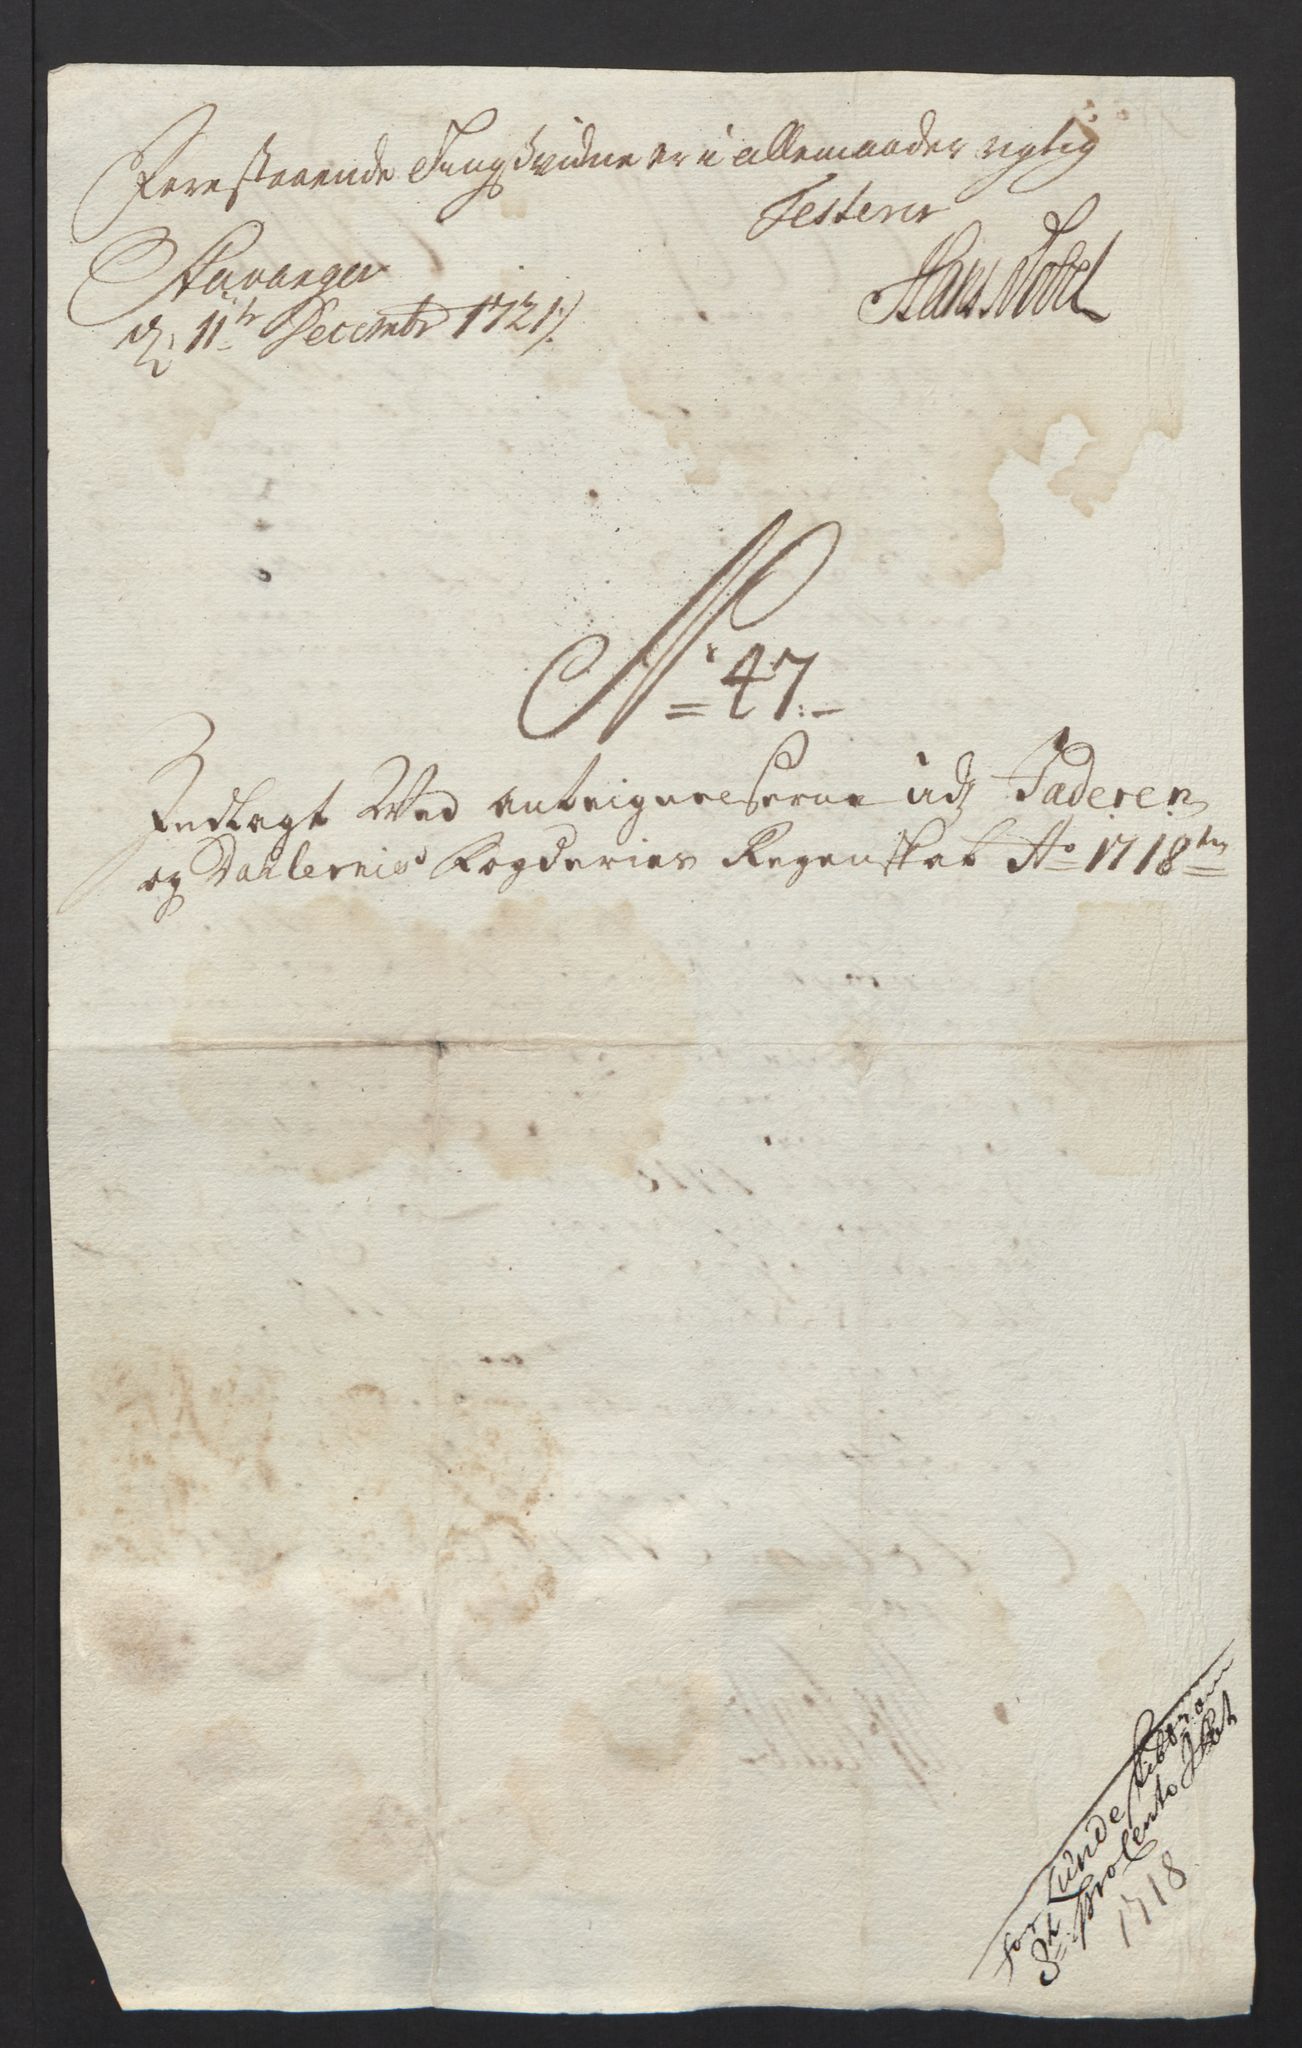 Forestaaende Tingsvidne er i alle maader rigtig
Testerer
Stavanger
d: 11te Decembr 1721
Hans Nobel
No 47
Indlagt Ved anteignelserne udj Jaderen
og Dahlernis fogderies Regenskab Ao 1718ten
for Lunde
3de procento Skat
1718